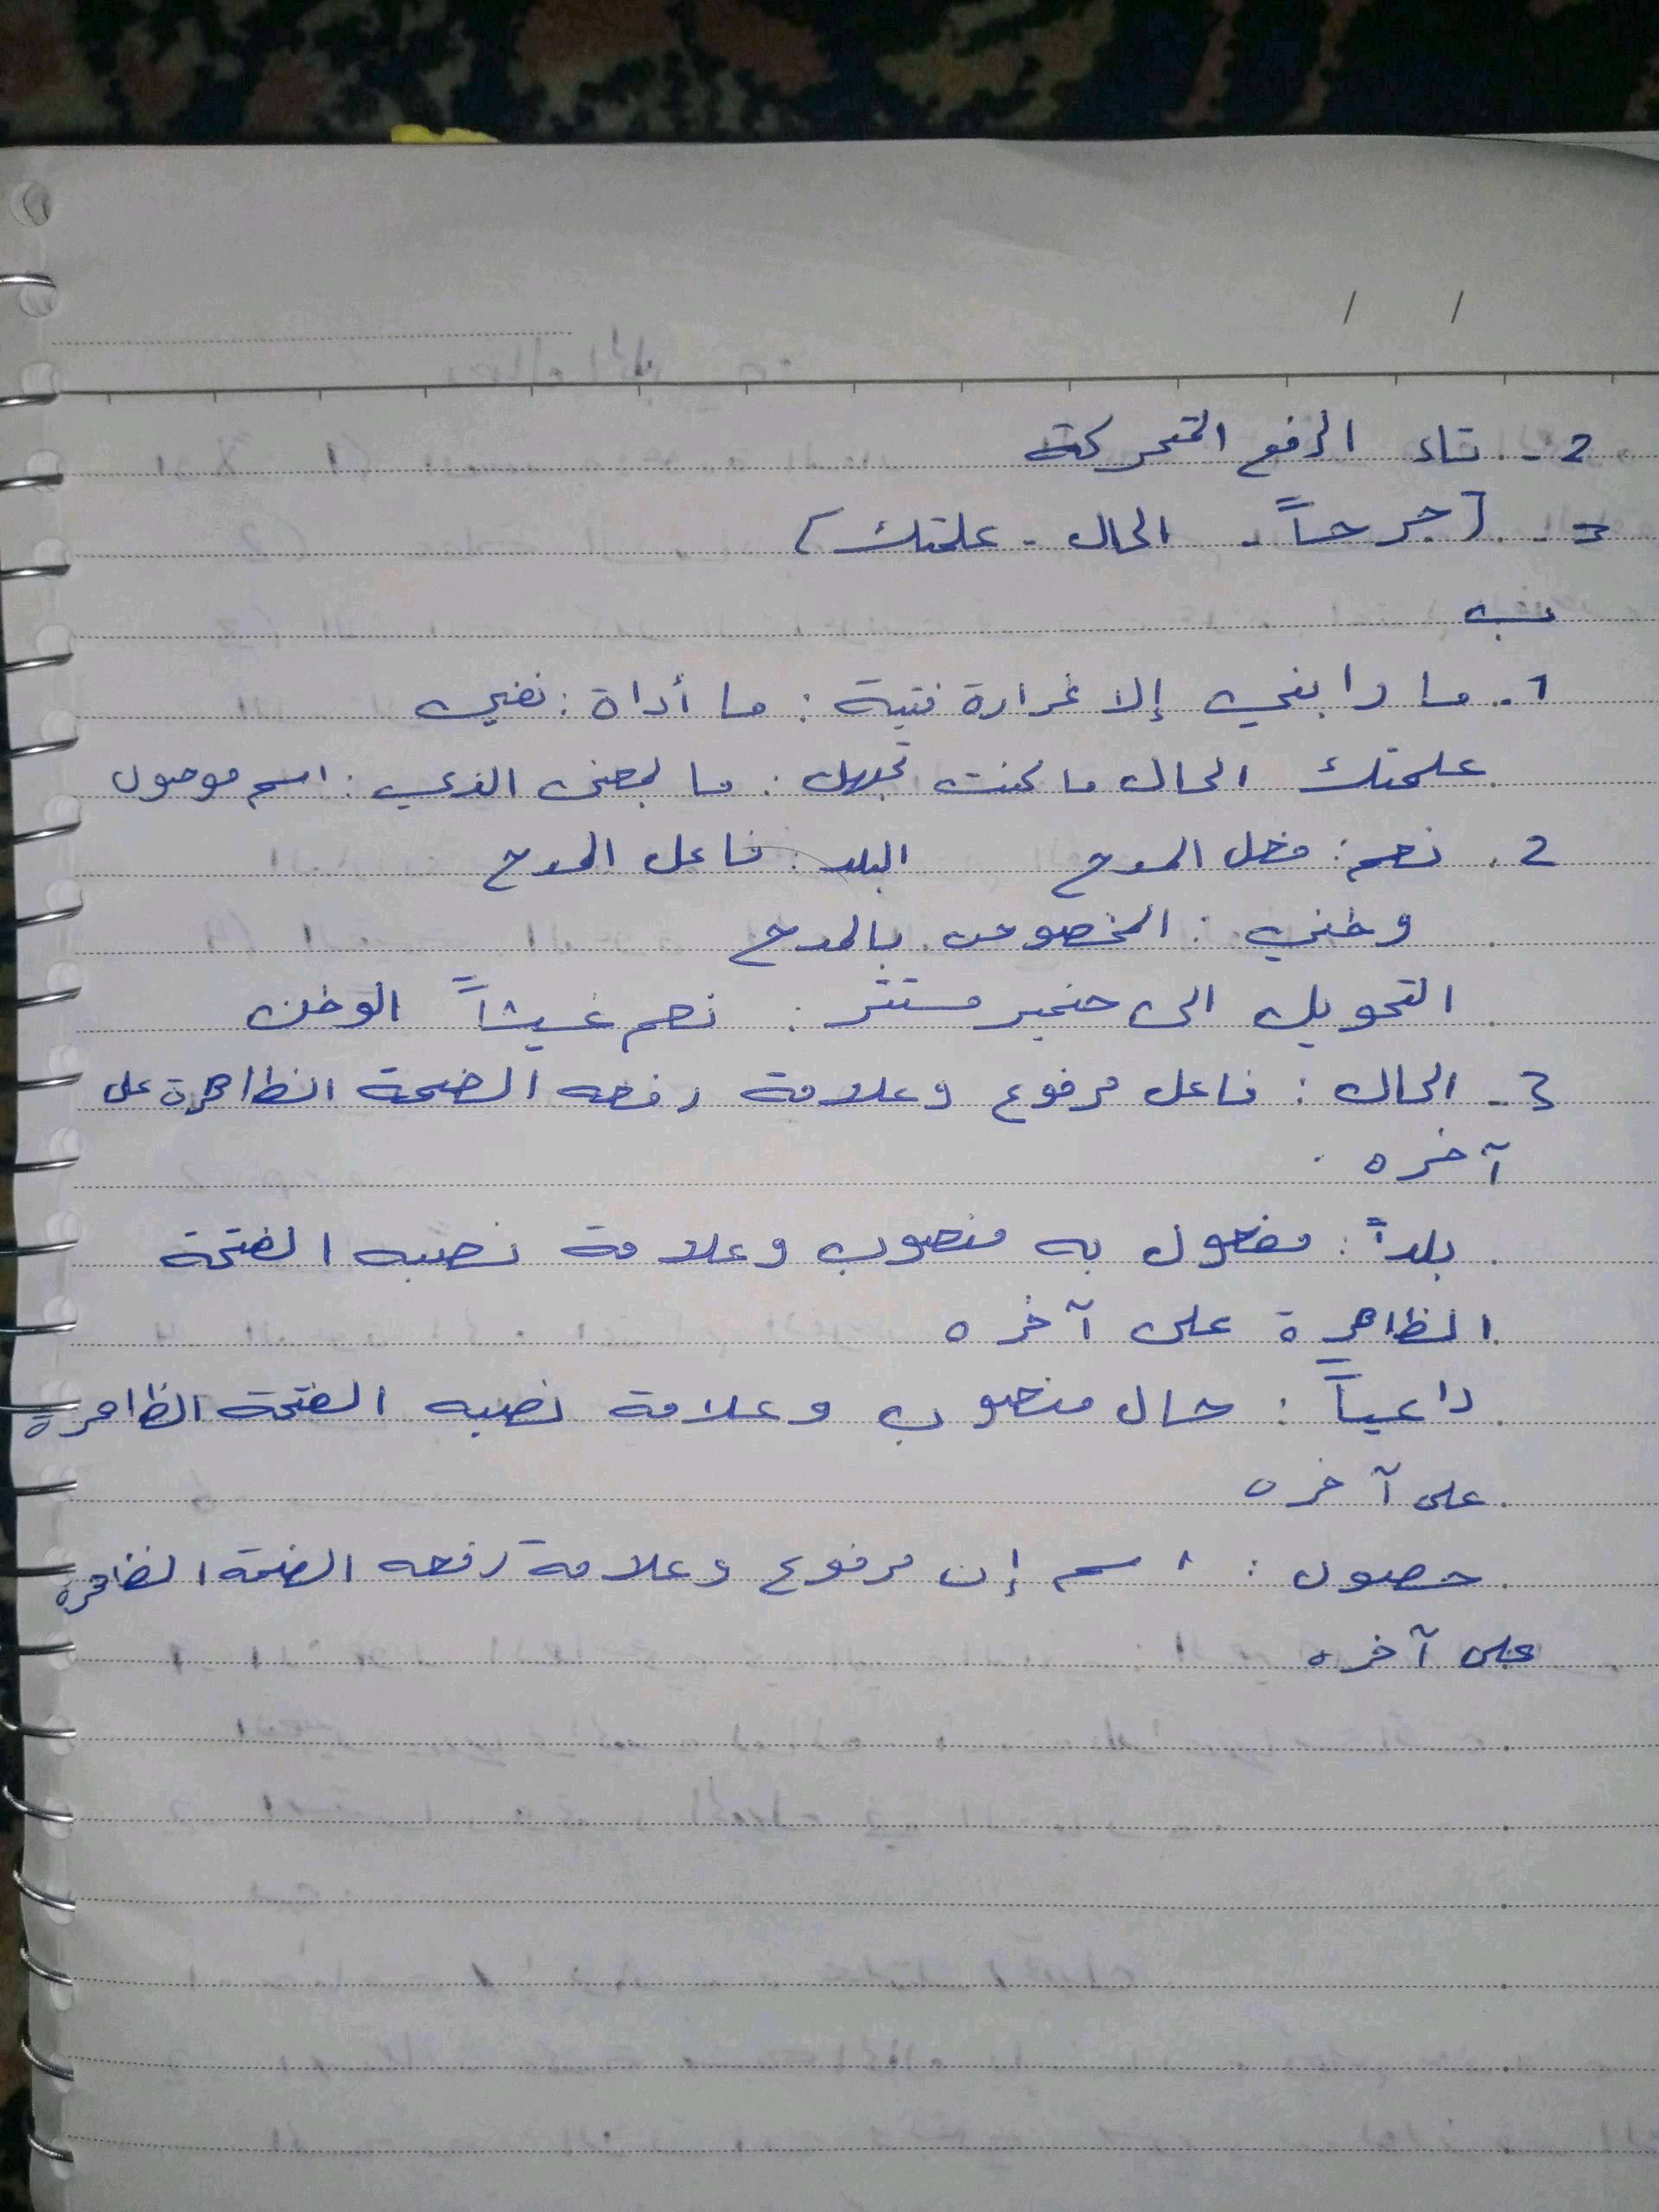 2 - تاء الرفع المتحركة
3 - [جرحاً - الحال - علمتك]
ب
1 - ما رابني إلا غرارة فتية : ما أداة : نفي
علمتك الحال ما كنت تجهل : ما بمعنى الذي : اسم موصول
2 . نعم : فعل المدح البلد : فاعل المدح
وطني : المخصوص بالمدح
التحويل الى ضمير مستتر : نعم غيثاً الوطن
3 - الحال : فاعل مرفوع وعلامة رفعه الضمة الظاهرة على
آخره .
بلداً : مفعول به منصوب وعلامة نصبه الفتحة
الظاهرة على آخره
داعياً : حال منصوب وعلامة نصبه الفتحة الظاهرة
على آخره
حصون : اسم إن مرفوع وعلامة رفعه الضمة الظاهرة
على آخره